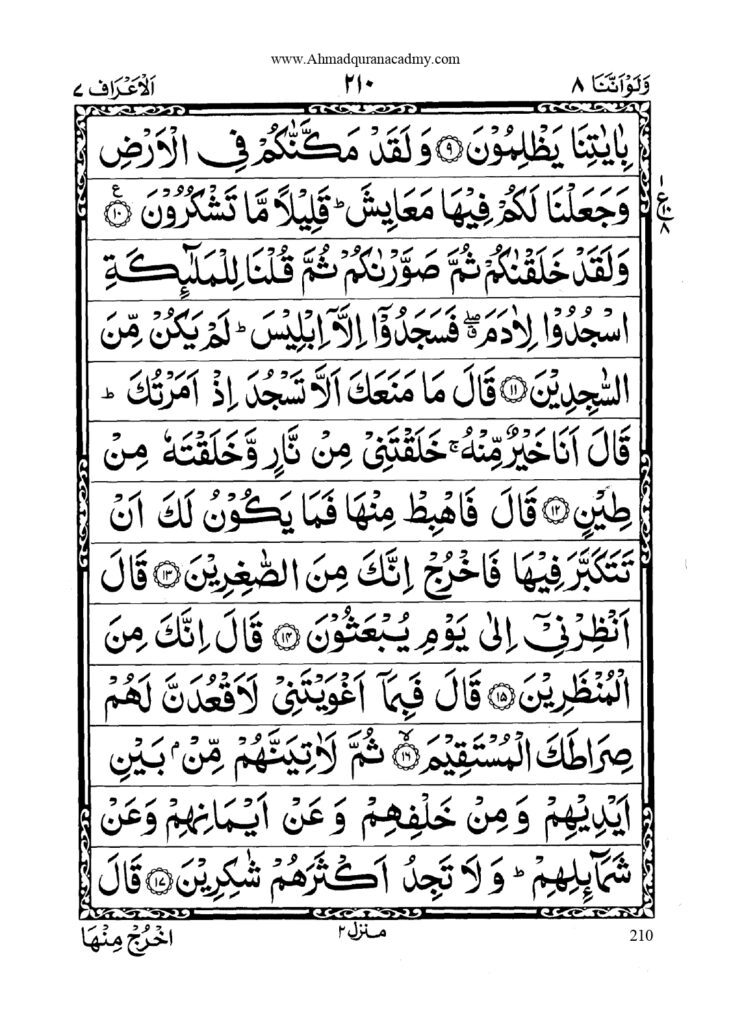 www.Ahmadquranacadmy.com
وَلَوْ اَنَّنَا ٨ ٢١٠ اَلْاَعْرَاف ٧
بِاٰيٰتِنَا يَظْلِمُوْنَ ۝٩ وَلَقَدْ مَكَّنّٰكُمْ فِى الْاَرْضِ
وَجَعَلْنَا لَكُمْ فِيْهَا مَعَايِشَ ؕ قَلِيْلًا مَّا تَشْكُرُوْنَ ۝١٠ ع
١ ع ١٠ ٨
وَلَقَدْ خَلَقْنٰكُمْ ثُمَّ صَوَّرْنٰكُمْ ثُمَّ قُلْنَا لِلْمَلٰٓئِكَةِ
اسْجُدُوْا لِاٰدَمَ ۖۗ فَسَجَدُوْۤا اِلَّاۤ اِبْلِيْسَ ؕ لَمْ يَكُنْ مِّنَ
السّٰجِدِيْنَ ۝١١ قَالَ مَا مَنَعَكَ اَلَّا تَسْجُدَ اِذْ اَمَرْتُكَ ؕ
قَالَ اَنَا خَيْرٌ مِّنْهُ ۚ خَلَقْتَنِىْ مِنْ نَّارٍ وَّخَلَقْتَهٗ مِنْ
طِيْنٍ ۝١٢ قَالَ فَاهْبِطْ مِنْهَا فَمَا يَكُوْنُ لَكَ اَنْ
تَتَكَبَّرَ فِيْهَا فَاخْرُجْ اِنَّكَ مِنَ الصّٰغِرِيْنَ ۝١٣ قَالَ
اَنْظِرْنِىْۤ اِلٰى يَوْمِ يُبْعَثُوْنَ ۝١٤ قَالَ اِنَّكَ مِنَ
الْمُنْظَرِيْنَ ۝١٥ قَالَ فَبِمَاۤ اَغْوَيْتَنِىْ لَاَقْعُدَنَّ لَهُمْ
صِرَاطَكَ الْمُسْتَقِيْمَ ۝١٦ ۙ ثُمَّ لَاٰتِيَنَّهُمْ مِّنْۢ بَيْنِ
اَيْدِيْهِمْ وَمِنْ خَلْفِهِمْ وَعَنْ اَيْمَانِهِمْ وَعَنْ
شَمَآئِلِهِمْ ؕ وَلَا تَجِدُ اَكْثَرَهُمْ شٰكِرِيْنَ ۝١٧ قَالَ
210 منزل ٢ اخْرُجْ مِنْهَا